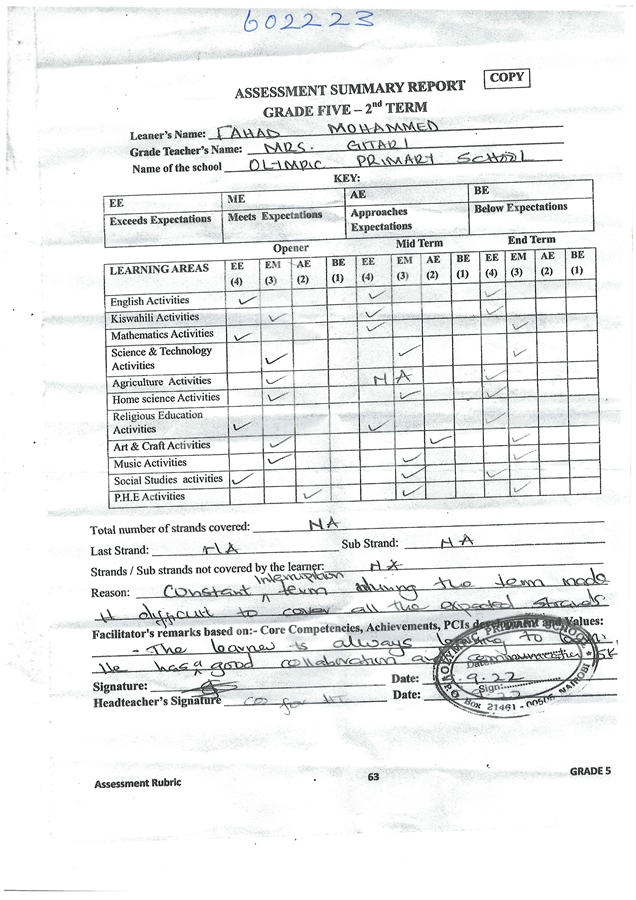 602223
COPY
ASSESSMENT SUMMARY REPORT
GRADE FIVE – 2nd TERM
Leaner's Name: FAHAD MOHAMMED
Grade Teacher's Name: MRS. GITARI
Name of the school OLYMPIC PRIMARY SCHOOL
KEY:
EE ME AE BE
Exceeds Expectations Meets Expectations Approaches Expectations Below Expectations
Opener Mid Term End Term
LEARNING AREAS EE (4) EM (3) AE (2) BE (1) EE (4) EM (3) AE (2) BE (1) EE (4) EM (3) AE (2) BE (1)
English Activities ✓ ✓ ✓
Kiswahili Activities ✓ ✓ ✓
Mathematics Activities ✓ ✓ ✓
Science & Technology Activities ✓ ✓ ✓
Agriculture Activities ✓ NA ✓
Home science Activities ✓ ✓ ✓
Religious Education Activities ✓ ✓ ✓
Art & Craft Activities ✓ ✓ ✓
Music Activities ✓ ✓ ✓
Social Studies activities ✓ ✓ ✓
P.H.E Activities ✓ ✓ ✓
Total number of strands covered: NA
Last Strand: NA Sub Strand: NA
Strands / Sub strands not covered by the learner: NA
Reason: Constant interruption term during the term made
it difficult to cover all the expected strands
Facilitator's remarks based on:- Core Competencies, Achievements, PCIs development and Values:
- The learner is always to
He has a good collaboration and
Signature: Date: 9.22
Headteacher's Signature Date:
OLYMPIC PRIMARY SCHOOL
Date:
Sign:
BOX 21461 - 00505 NAIROBI
Assessment Rubric 63 GRADE 5